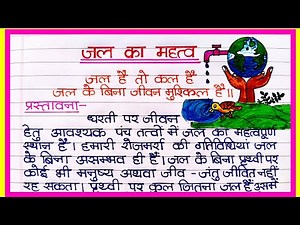 जल का महत्व
जल है तो कल है
जल के बिना जीवन मुश्किल है॥
प्रस्तावना-
धरती पर जीवन
हेतु आवश्यक पंच तत्वों में जल का महत्वपूर्ण
स्थान है। हमारी रोजमर्रा की गतिविधियां जल
के बिना असम्भव ही हैं। जल के बिना पृथ्वी पर
कोई भी मनुष्य अथवा जीव-जंतु जीवित नहीं
रह सकता। पृथ्वी पर कुल जितना जल है उसमें